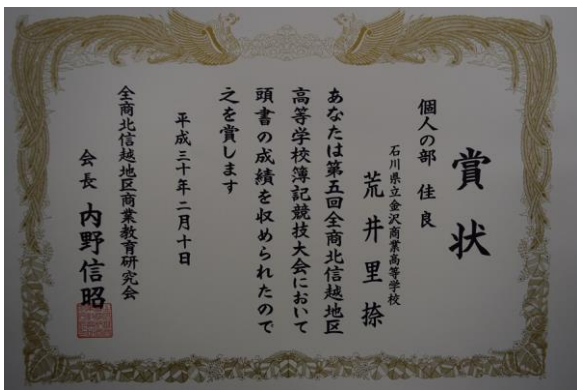 賞状
個人の部 佳良
石川県立金沢商業高等学校
荒井里捺
あなたは第五回全商北信越地区
高等学校簿記競技大会において
頭書の成績を収められたので
之を賞します
平成三十年二月十日
全商北信越地区商業教育研究会
会長 内野信昭